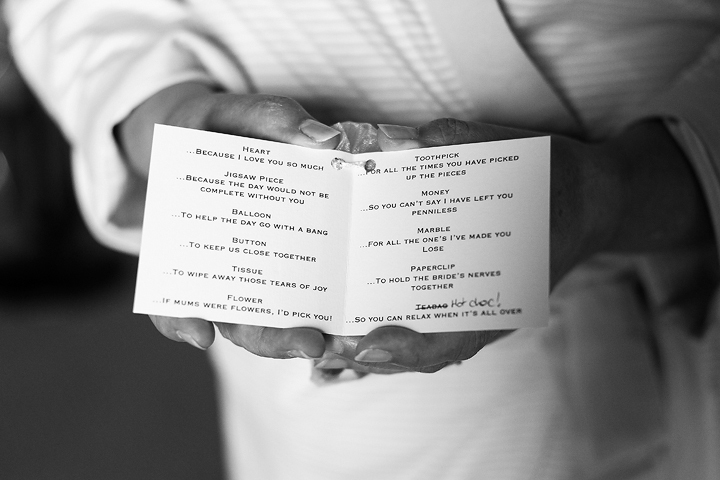 Heart
...Because I love you so much
Jigsaw Piece
...Because the day would not be
complete without you
Balloon
...To help the day go with a bang
Button
...To keep us close together
Tissue
...To wipe away those tears of joy
Flower
...If mums were flowers, I'd pick you!
Toothpick
...For all the times you have picked
up the pieces
Money
...So you can't say I have left you
penniless
Marble
...For all the one's I've made you
Lose
Paperclip
...To hold the bride's nerves
together
Teabag Hot choc!
...So you can relax when it's all over